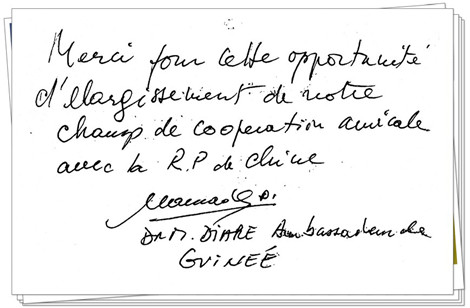 Merci pour cette opportunité
d'élargissement de notre
champ de cooperation amicale
avec la R.P de Chine
Mamady D.
Dr M. DIARE Ambassadeur de
GUINEÉ